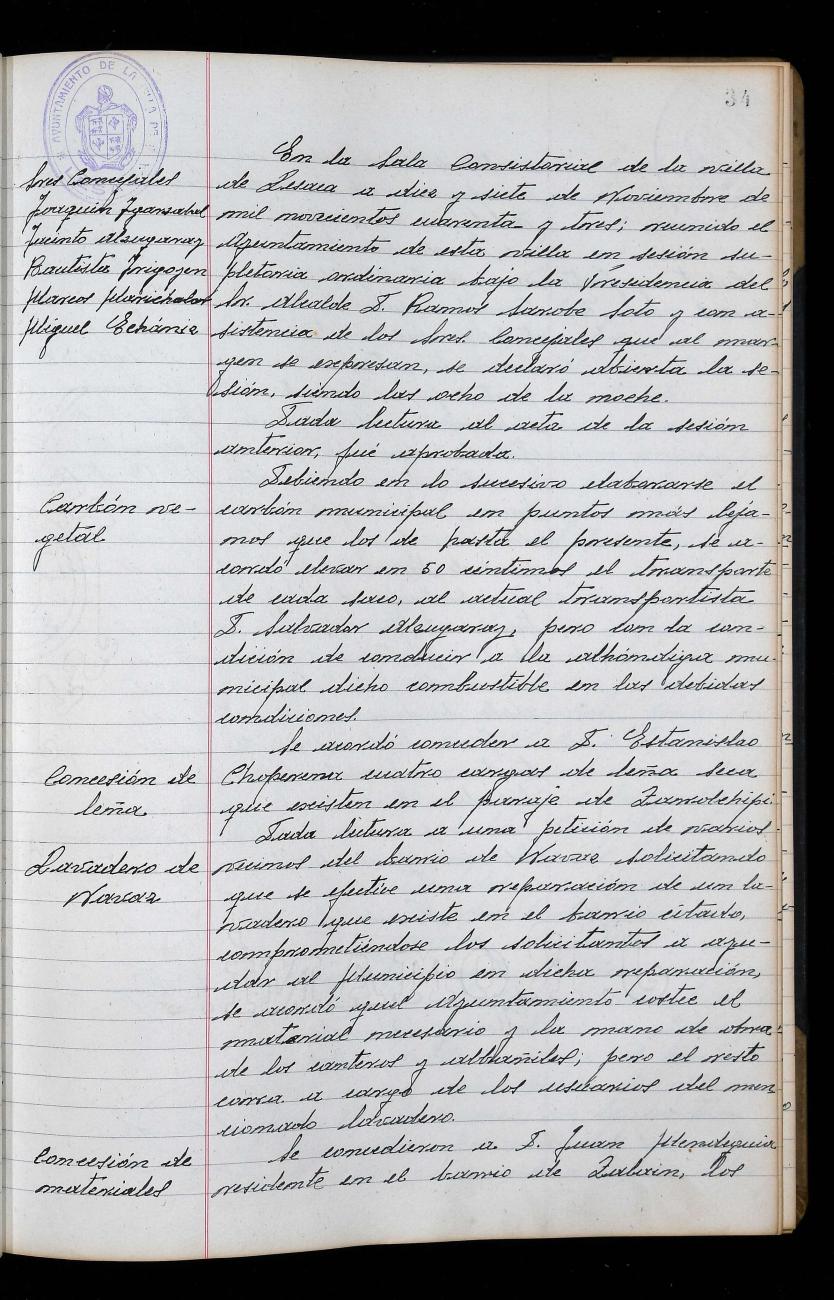 34
AYUNTAMIENTO DE LA VILLA DE
Sres Concejales
Joaquin Igarzabal
Jacinto Alzugaray
Bautista Irigoyen
Marcos Marichalar
Miguel Echániz
En la Sala Consistorial de la villa
de Lesaca a diez y siete de Noviembre de
mil novecientos cuarenta y tres; reunido el
Ayuntamiento de esta villa en sesión su-
pletoria ordinaria bajo la Presidencia del
Sr. Alcalde D. Ramos Sarobe Soto y con a-
sistencia de los Sres. Concejales que al mar-
gen se expresan, se declaró abierta la se-
sión, siendo las ocho de la noche.
Dada lectura al acta de la sesión
anterior, fué aprobada.
Carbón ve-
getal
Debiendo en lo sucesivo elaborarse el
carbón municipal en puntos más lejá-
nos que los de hasta el presente, se a-
cordó elevar en 50 céntimos el transporte
de cada saco, al actual transportista
D. Salvador Alzugaray, pero con la con-
dición de conducir a la alhóndiga mu-
nicipal dicho combustible en las debidas
condiciones.
Concesión de
leña
Se acordó conceder a D. Estanislao
Choperena cuatro cargas de leña seca
que existen en el paraje de Zarrolchipi.
Lavadero de
Navaz
Dada lectura a una petición de varios
vecinos del barrio de Navaz solicitando
que se efectúe una reparación de un la-
vadero que existe en el barrio citado,
comprometiéndose los solicitantes a ayu-
dar al Municipio en dicha reparación,
se acordó quel Ayuntamiento costee el
material necesario y la mano de obra
de los canteros y albañiles; pero el resto
corra a cargo de los usuarios del men
cionado lavadero.
Concesión de
materiales
Se concedieron a D. Juan Mendeguia
residente en el barrio de Zalain, los